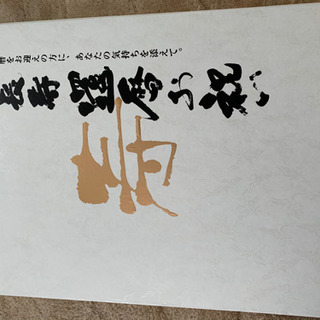 暦をお迎えの方に、あなたの気持ちを添えて。
長寿還暦お祝い
寿